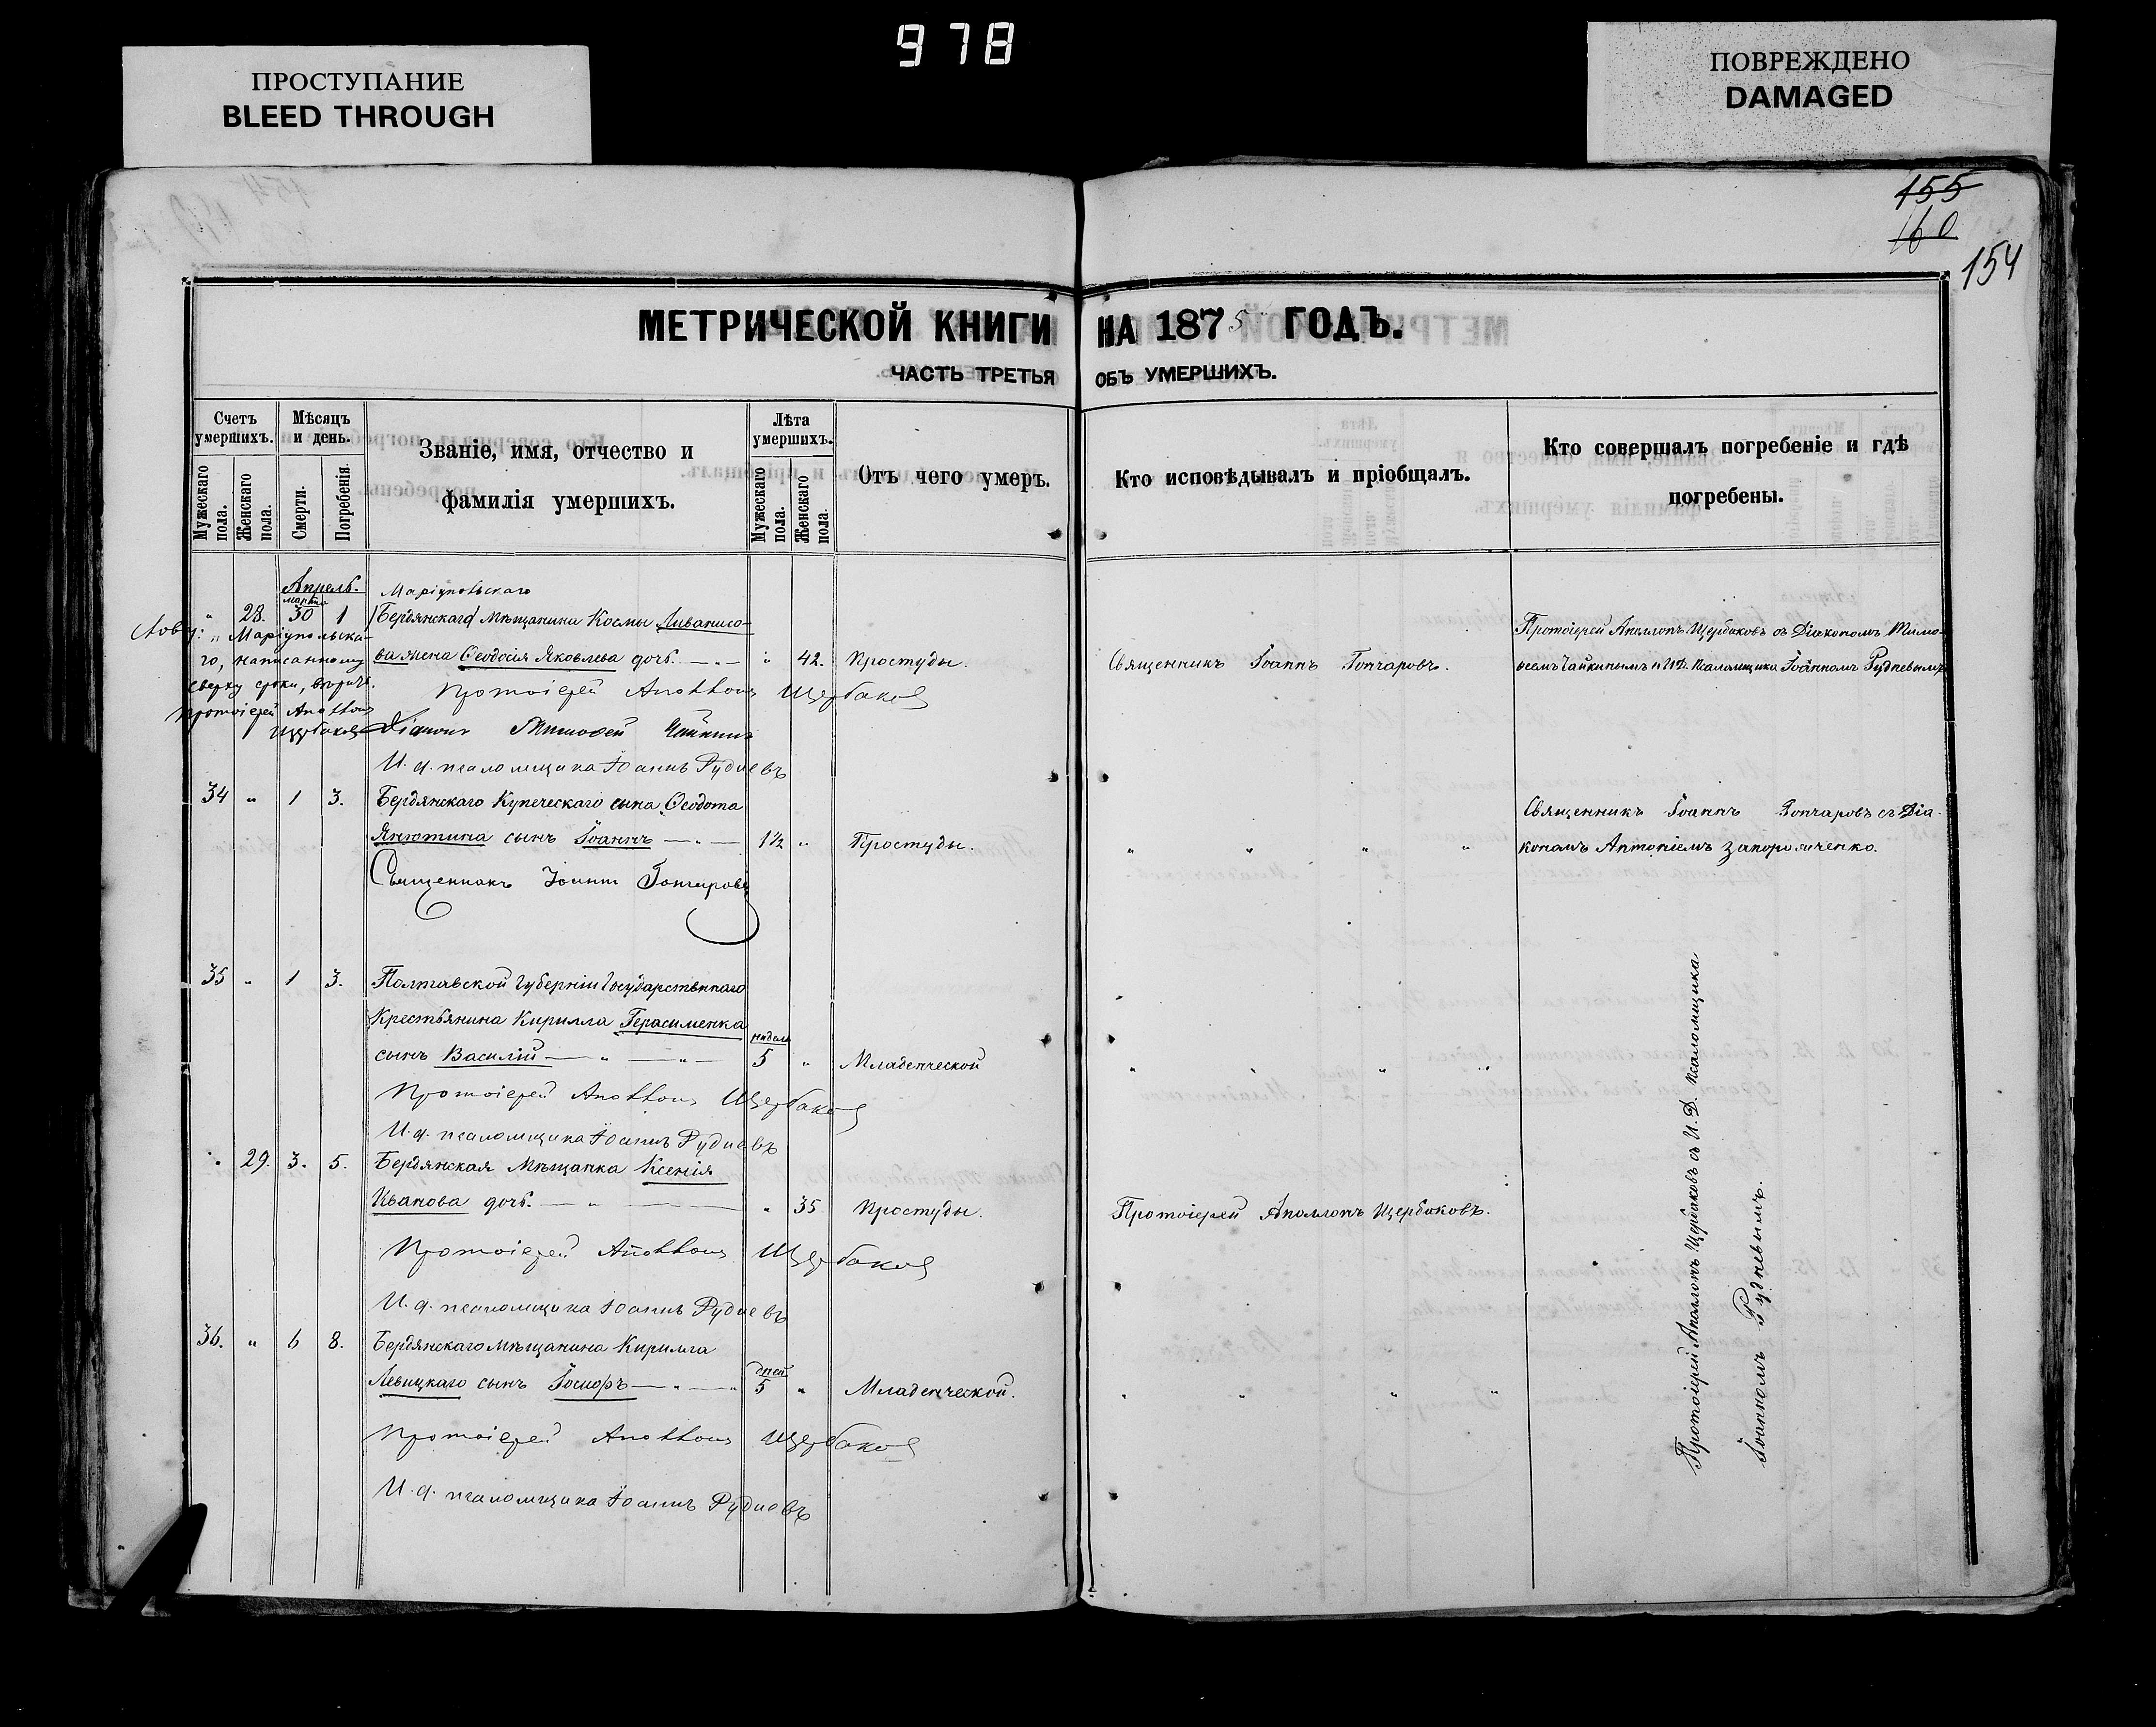 978
ПРОСТУПАНИЕ
BLEED THROUGH
ПОВРЕЖДЕНО
DAMAGED
155
160
154
МЕТРИЧЕСКОЙ КНИГИ НА 1875 ГОДЪ.
ЧАСТЬ ТРЕТЬЯ ОБЪ УМЕРШИХЪ.
Счетъ умершихъ.
Мужескаго пола.
Женскаго пола.
Мѣсяцъ и день.
Смерти.
Погребенія.
Званіе, имя, отчество и
фамилія умершихъ.
Лѣта умершихъ.
Мужескаго пола.
Женскаго пола.
Отъ чего умеръ.
Кто исповѣдывалъ и пріобщалъ.
Кто совершалъ погребеніе и гдѣ
погребены.
Апрель.
Маріупольскаго
" 28. марта 30 1 Бердянскаго Мѣщанина Космы Ливанисо-
ва жена Ѳеодосія Яковлева дочь. — " — " 42. Простуды.
Священникъ Іоаннъ Гончаровъ.
Протоіерей Аполлонъ Щербаковъ съ Діакономъ Тимо-
ѳеемъ Чайкинымъ и И.Д. Псаломщика Іоанномъ Рудневымъ
" Маріупольска-
го, написанному
сверху строки, вѣрить.
Протоіерей Аполлонъ
Щербаковъ
Протоіерей Аполлонъ Щербаковъ
Діаконъ Тимоѳей Чайкинъ
И. д. псаломщика Іоаннъ Рудневъ
34 " 1 3. Бердянскаго Купеческаго сына Ѳеодота
Янютина сынъ Іоаннъ — " — 1½ " Простуды.
" " " "
Священникъ Іоаннъ Гончаровъ съ Діа-
кономъ Антоніемъ Запорожченко.
Священникъ Іоаннъ Гончаровъ
35 " 1 3. Полтавской Губерніи Государственнаго
Крестьянина Кирилла Герасименка
сынъ Василій — " — " — недель 5 " Младенческой
Протоіерей Аполлонъ Щербаковъ
И. д. псаломщика Іоаннъ Рудневъ
" 29. 3. 5. Бердянская Мѣщанка Ксенія
Иванова дочь. — " — " 35 Простуды.
Протоіерей Аполлонъ Щербаковъ.
Протоіерей Аполлонъ Щербаковъ
И. д. псаломщика Іоаннъ Рудневъ
36. " 6 8. Бердянскаго мѣщанина Кирилла
Левицкаго сынъ Іосифъ — " — " дней 5 " Младенческой.
" " " "
Протоіерей Аполлонъ Щербаковъ
И. д. псаломщика Іоаннъ Рудневъ
Протоіерей Аполлонъ Щербаковъ съ И. Д. Псаломщика
Іоанномъ Рудневымъ.